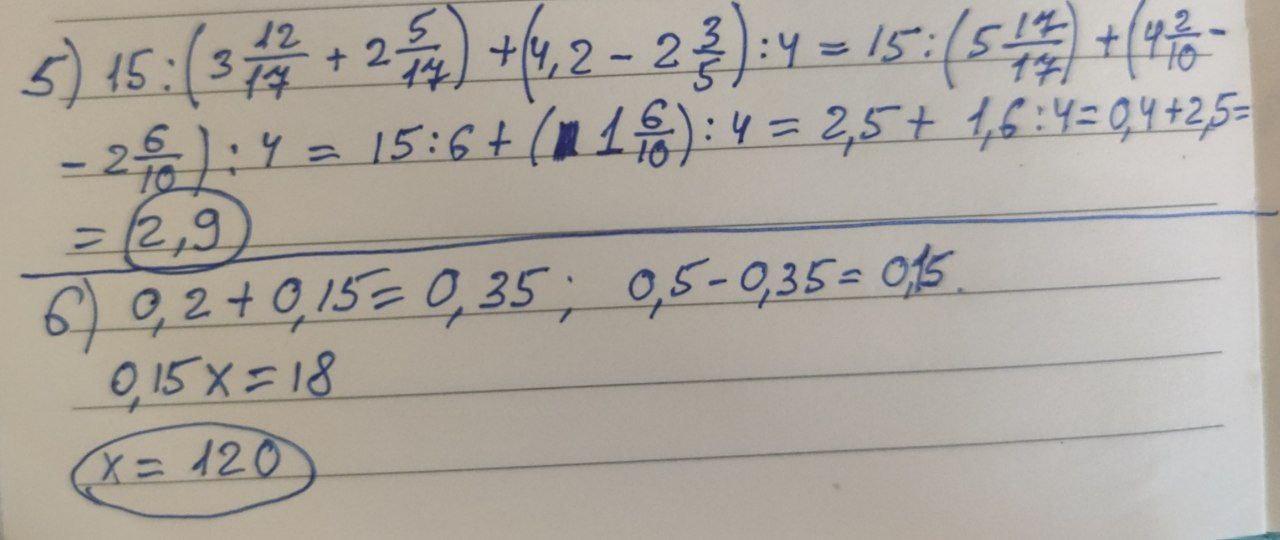 5) 15:(3 12/17 + 2 5/17) + (4,2 - 2 3/5):4 = 15:(5 17/17) + (4 2/10 -
- 2 6/10):4 = 15:6 + (1 6/10):4 = 2,5 + 1,6:4 = 0,4+2,5=
= 2,9
6) 0,2 + 0,15 = 0,35; 0,5 - 0,35 = 0,15.
0,15x = 18
x = 120